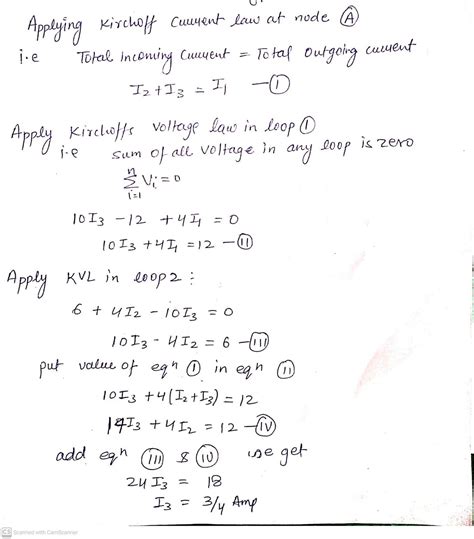 Applying Kirchoff Current law at node Ⓐ
i.e Total incoming Current = Total outgoing current
I₂ + I₃ = I₁ — Ⓘ
Apply Kirchoffs voltage law in loop ①
i.e sum of all voltage in any loop is zero
n
Σ Vi = 0
i=1
10I₃ - 12 + 4I₁ = 0
10I₃ + 4I₁ = 12 — (II)
Apply KVL in loop 2 :
6 + 4I₂ - 10I₃ = 0
10I₃ - 4I₂ = 6 — (III)
put value of eqn (I) in eqn (II)
10I₃ + 4(I₂+I₃) = 12
14I₃ + 4I₂ = 12 — (IV)
add eqn (III) & (IV) we get
24I₃ = 18
I₃ = 3/4 Amp
CS Scanned with CamScanner